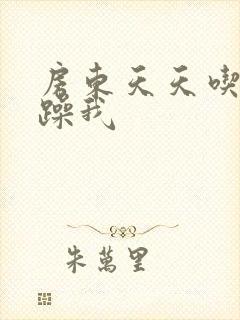 房東天天喫
躁我
朱萬里